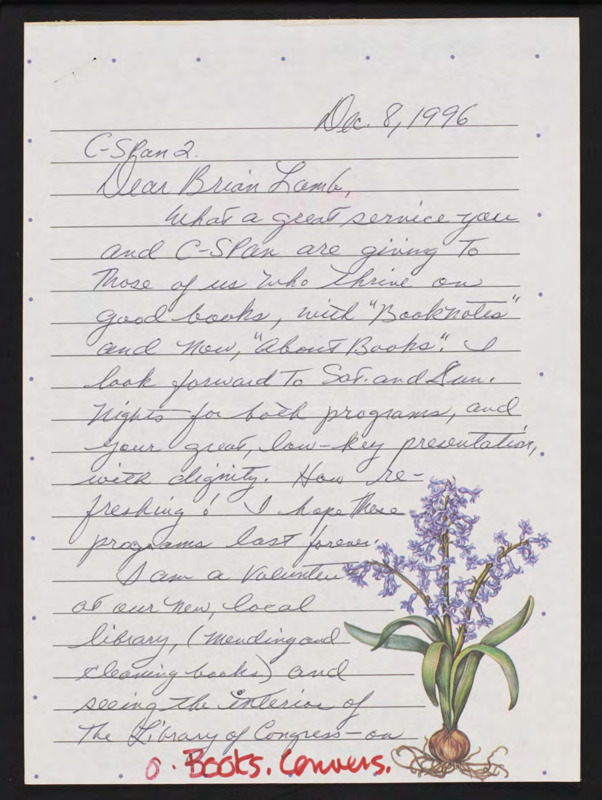 Dec. 8, 1996
C-Span 2.
Dear Brian Lamb,
What a great service you
and C-SPan are giving to
those of us who thrive on
good books, with "Booknotes"
and now, "About Books". I
look forward to Sat. and Sun.
nights for both programs, and
your great, low-key presentation,
with dignity. How re-
freshing! I hope these
programs last forever.
I am a volunteer
at our new, local
library, (mending and
cleaning books) and
seeing the interior of
the Library of Congress - on
Books. Convers.